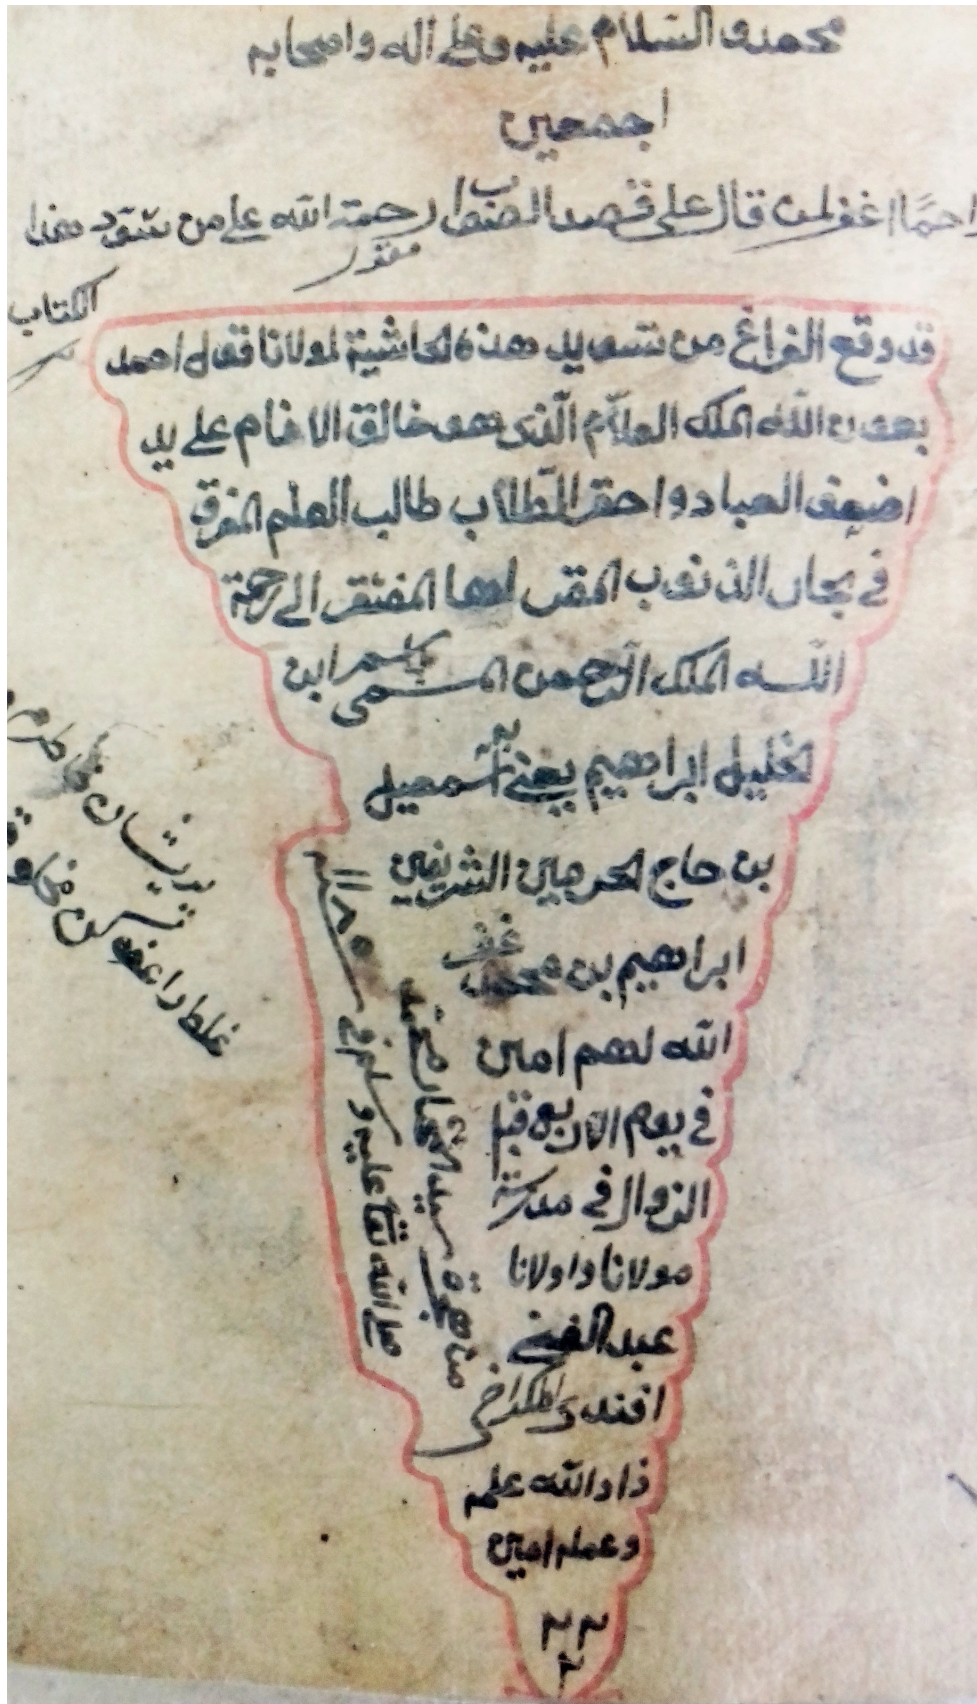 محمد و السلام عليه وعلى اله واصحابه
اجمعين
اغفر لمن قال على قصد الصواب رحمة الله على من سود هذا
الكتاب
قد وقع الفراغ من تسويد هذه الحاشية لمولانا قول احمد
بعون الله الملك العلام الذى هو خالق الانام على يد
اضعف العباد واحقر الطلاب طالب العلم الغرق
فى بحار الذنوب المقر لها المفتقر الى رحمة
الله الملك الرحمن المسمى باسم ابن
الخليل ابراهيم يعنى به اسمعيل
بن حاج الحرمين الشريفين
ابراهيم بن محمد غفر
الله لهم امين
فى يوم الاربع قبل
الزوال فى مدرسة
مولانا واولانا
عبد الفتح
افندى
زاد الله علمه
وعمله امين
من هجرة سيد
صلى الله تعا عليه وسلم فى
پريشان خاطرم
غلط را عفو كن